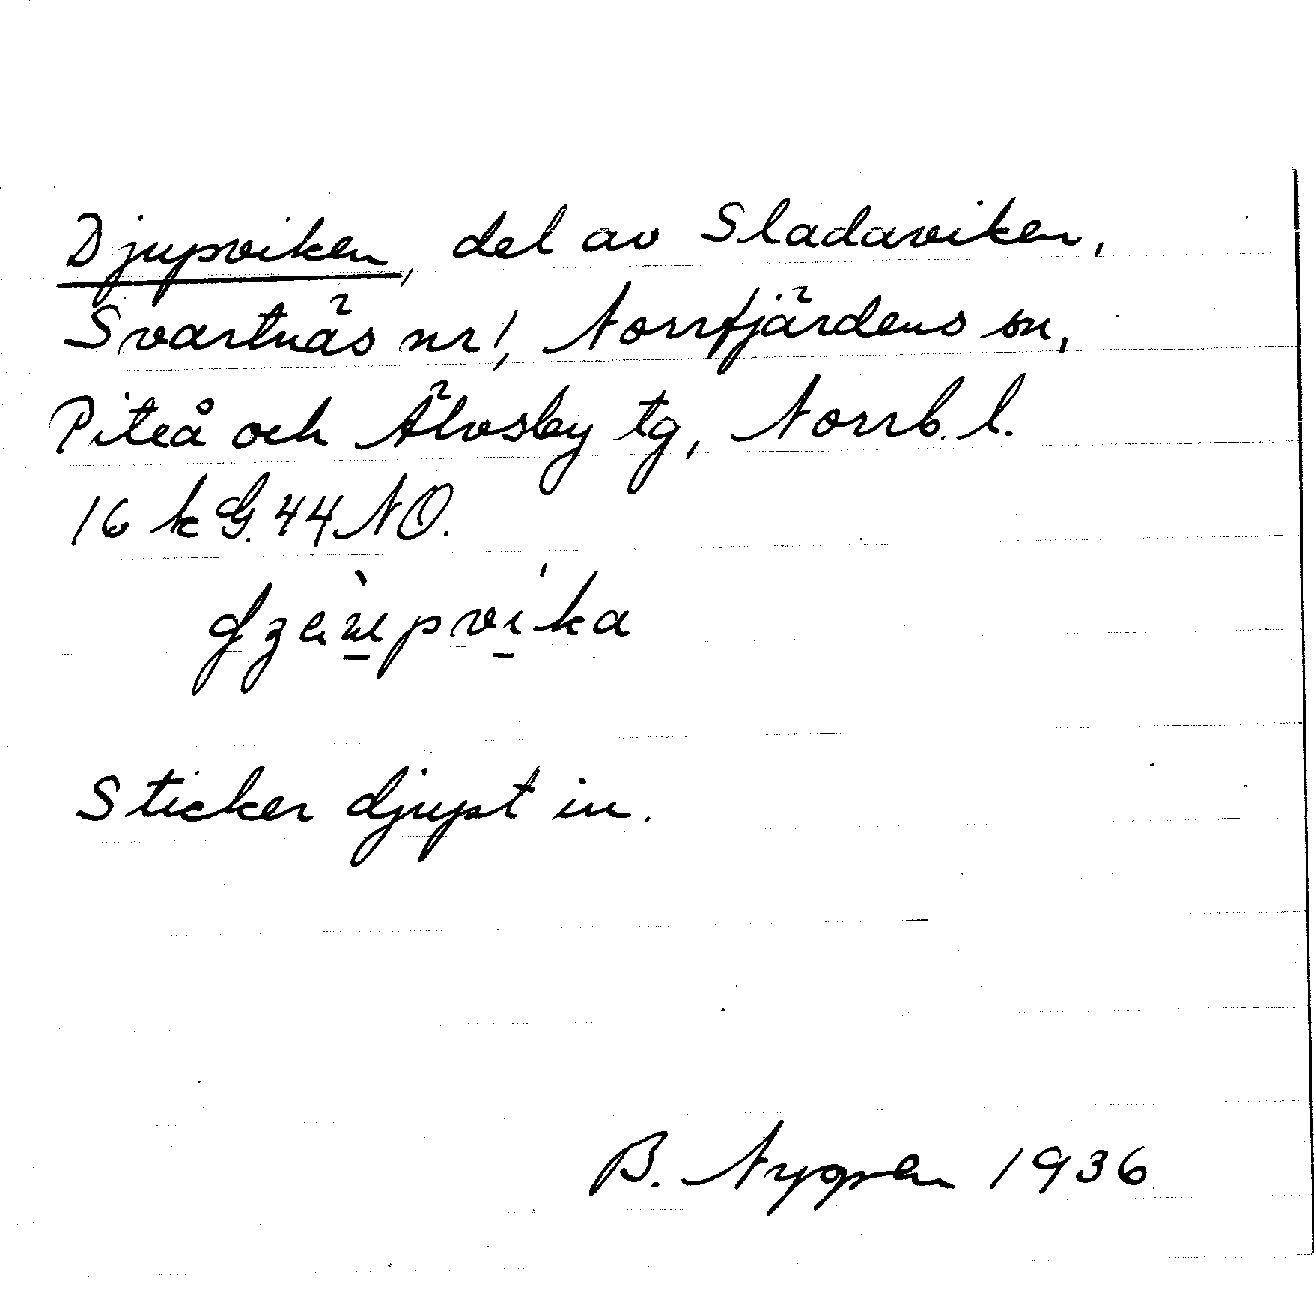 Djupviken, del av Sladaviken,
Svartnäs nr 1, Norrfjärdens sn,
Piteå och Älvsby tg, Norrb. l.
16 k G. 44 NO.
Sticker djupt in.
B. Nygren 1936